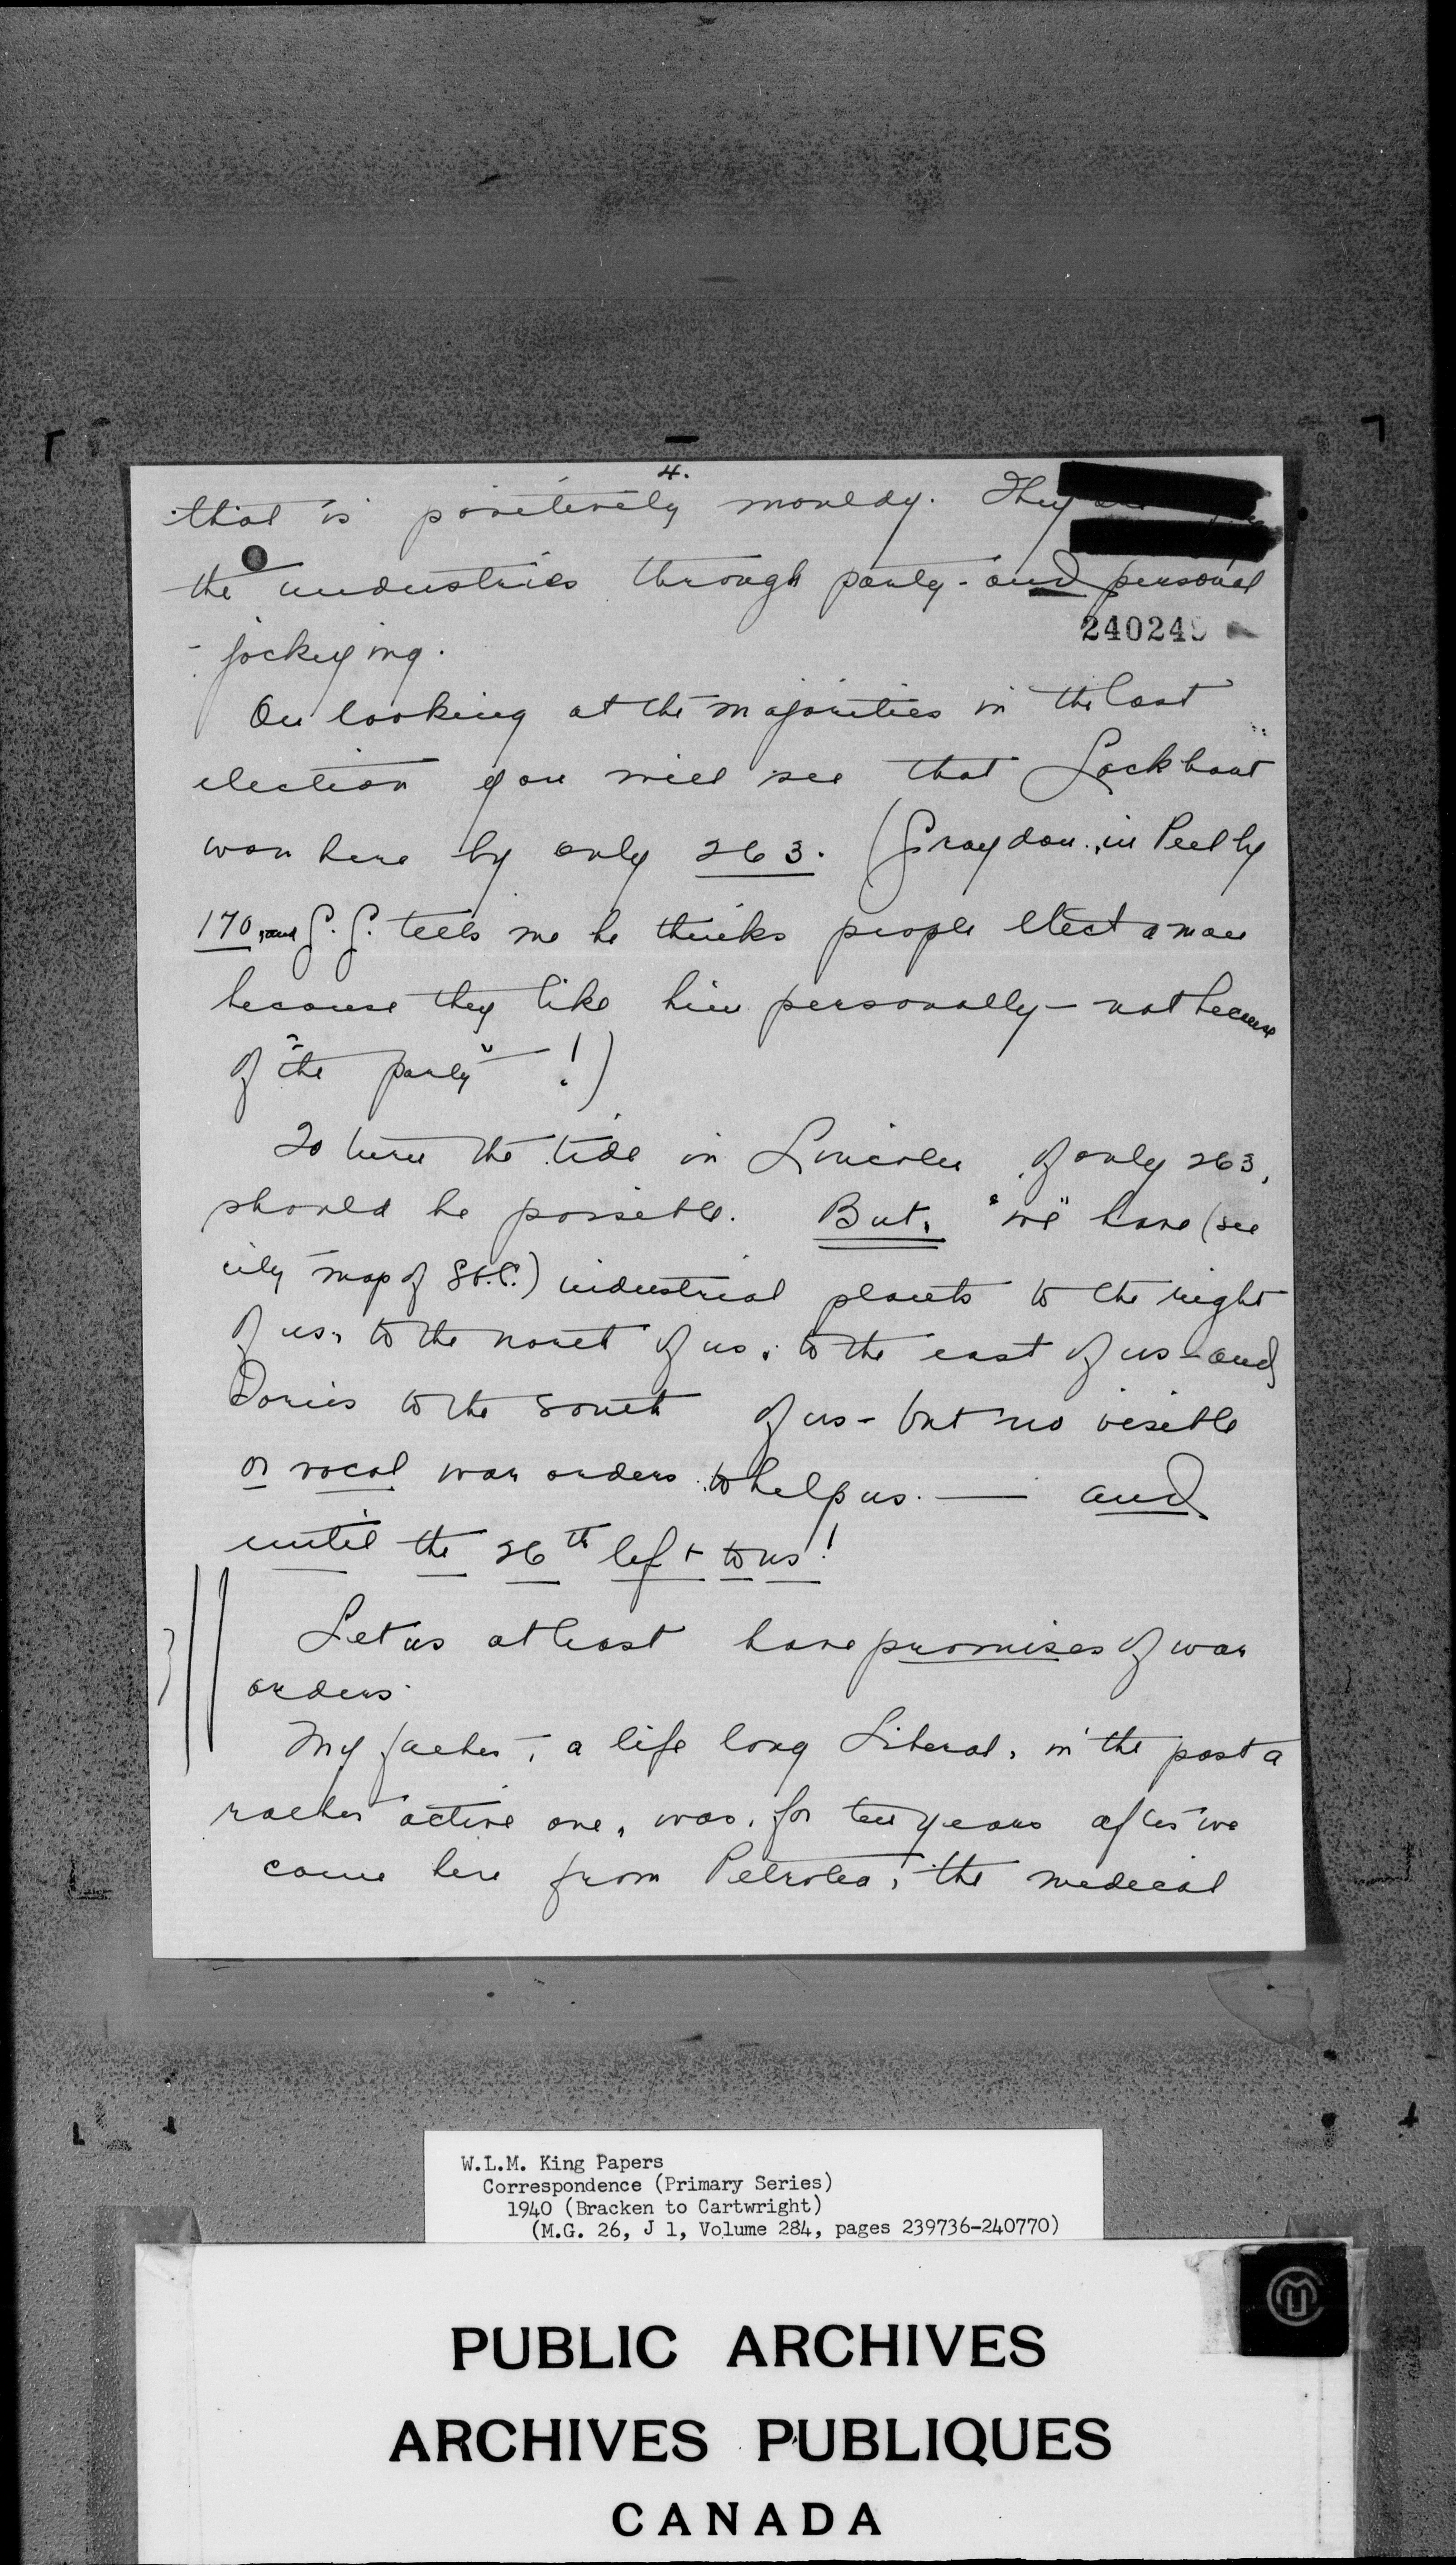 4.
that is positively mouldy. They
the industries through party - and personal
240249
- jockeying.
On looking at the majorities in the last
election you will see that Lockhart
won here by only 263. (Graydon, in Peel by
170, and G. G. tells me he thinks people elect a man
because they like him personally - not because
of "the party" - !)
To turn the tide in Lincoln, of only 263,
should be possible. But, "we" have (see
city map of St. C.) industrial plants to the right
of us, to the north of us, to the east of us - and
Tories to the south of us - but no visible
or vocal war orders to help us. — and
until the 26th left to us!
Let us at least have promises of war
orders.
My father, a life long Liberal, in the past a
rather active one, was, for ten years after we
came here from Petrolea, the medical
W.L.M. King Papers
Correspondence (Primary Series)
1940 (Bracken to Cartwright)
(M.G. 26, J 1, Volume 284, pages 239736-240770)
PUBLIC ARCHIVES
ARCHIVES PUBLIQUES
CANADA